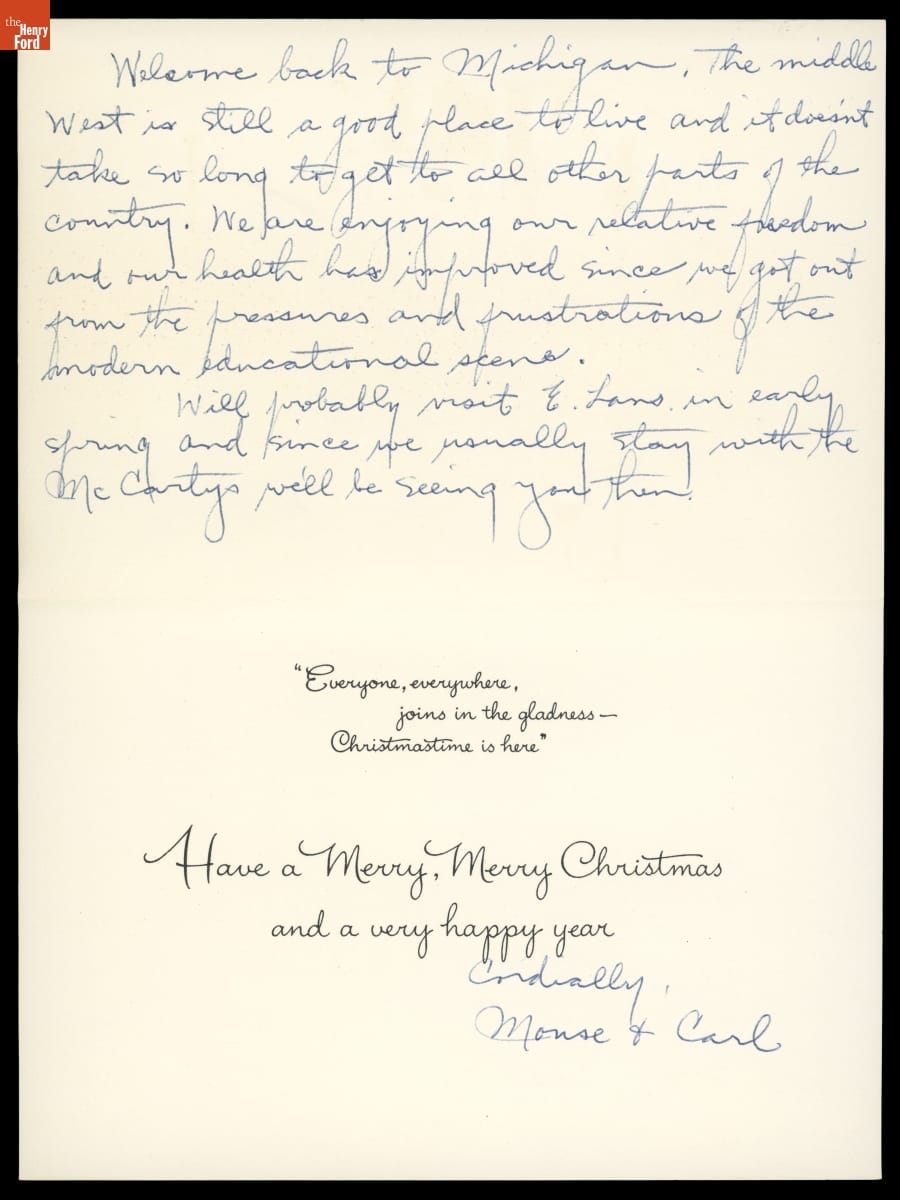 the
Henry
Ford
Welcome back to Michigan. The middle
West is still a good place to live and it doesn't
take so long to get to all other parts of the
country. We are enjoying our relative freedom
and our health has improved since we got out
from the pressures and frustrations of the
modern educational scene.
Will probably visit E. Lans. in early
spring and since we usually stay with the
McCartys we'll be seeing you then.
"Everyone, everywhere,
joins in the gladness—
Christmastime is here"
Have a Merry, Merry Christmas
and a very happy year
Cordially,
Mouse & Carl